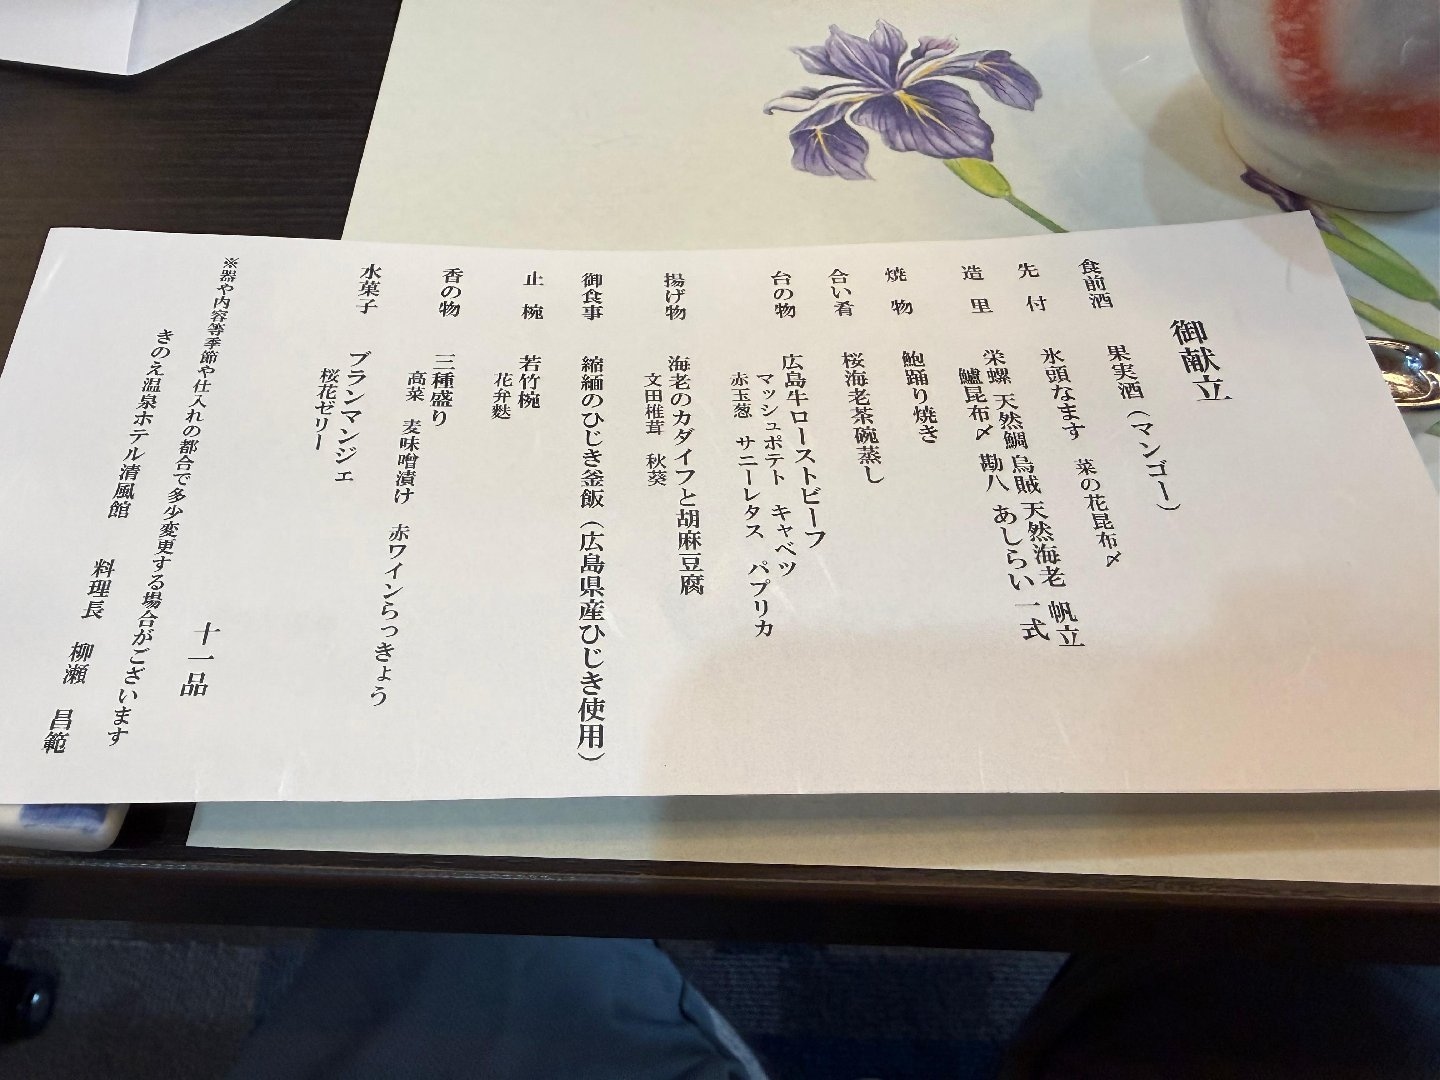 御献立
食前酒 果実酒（マンゴー）
先付 氷頭なます 菜の花昆布〆
造里 栄螺 天然鯛 烏賊 天然海老 帆立
鱸昆布〆 勘八 あしらい一式
焼物 鮑踊り焼き
合い肴 桜海老茶碗蒸し
台の物 広島牛ローストビーフ
マッシュポテト キャベツ
赤玉葱 サニーレタス パプリカ
揚げ物 海老のカダイフと胡麻豆腐
文田椎茸 秋葵
御食事 縮緬のひじき釜飯（広島県産ひじき使用）
止椀 若竹椀
花弁麩
香の物 三種盛り
高菜 麦味噌漬け 赤ワインらっきょう
水菓子 ブランマンジェ
桜花ゼリー
十一品
※器や内容等季節や仕入れの都合で多少変更する場合がございます
きのえ温泉ホテル清風館 料理長 柳瀬 昌範